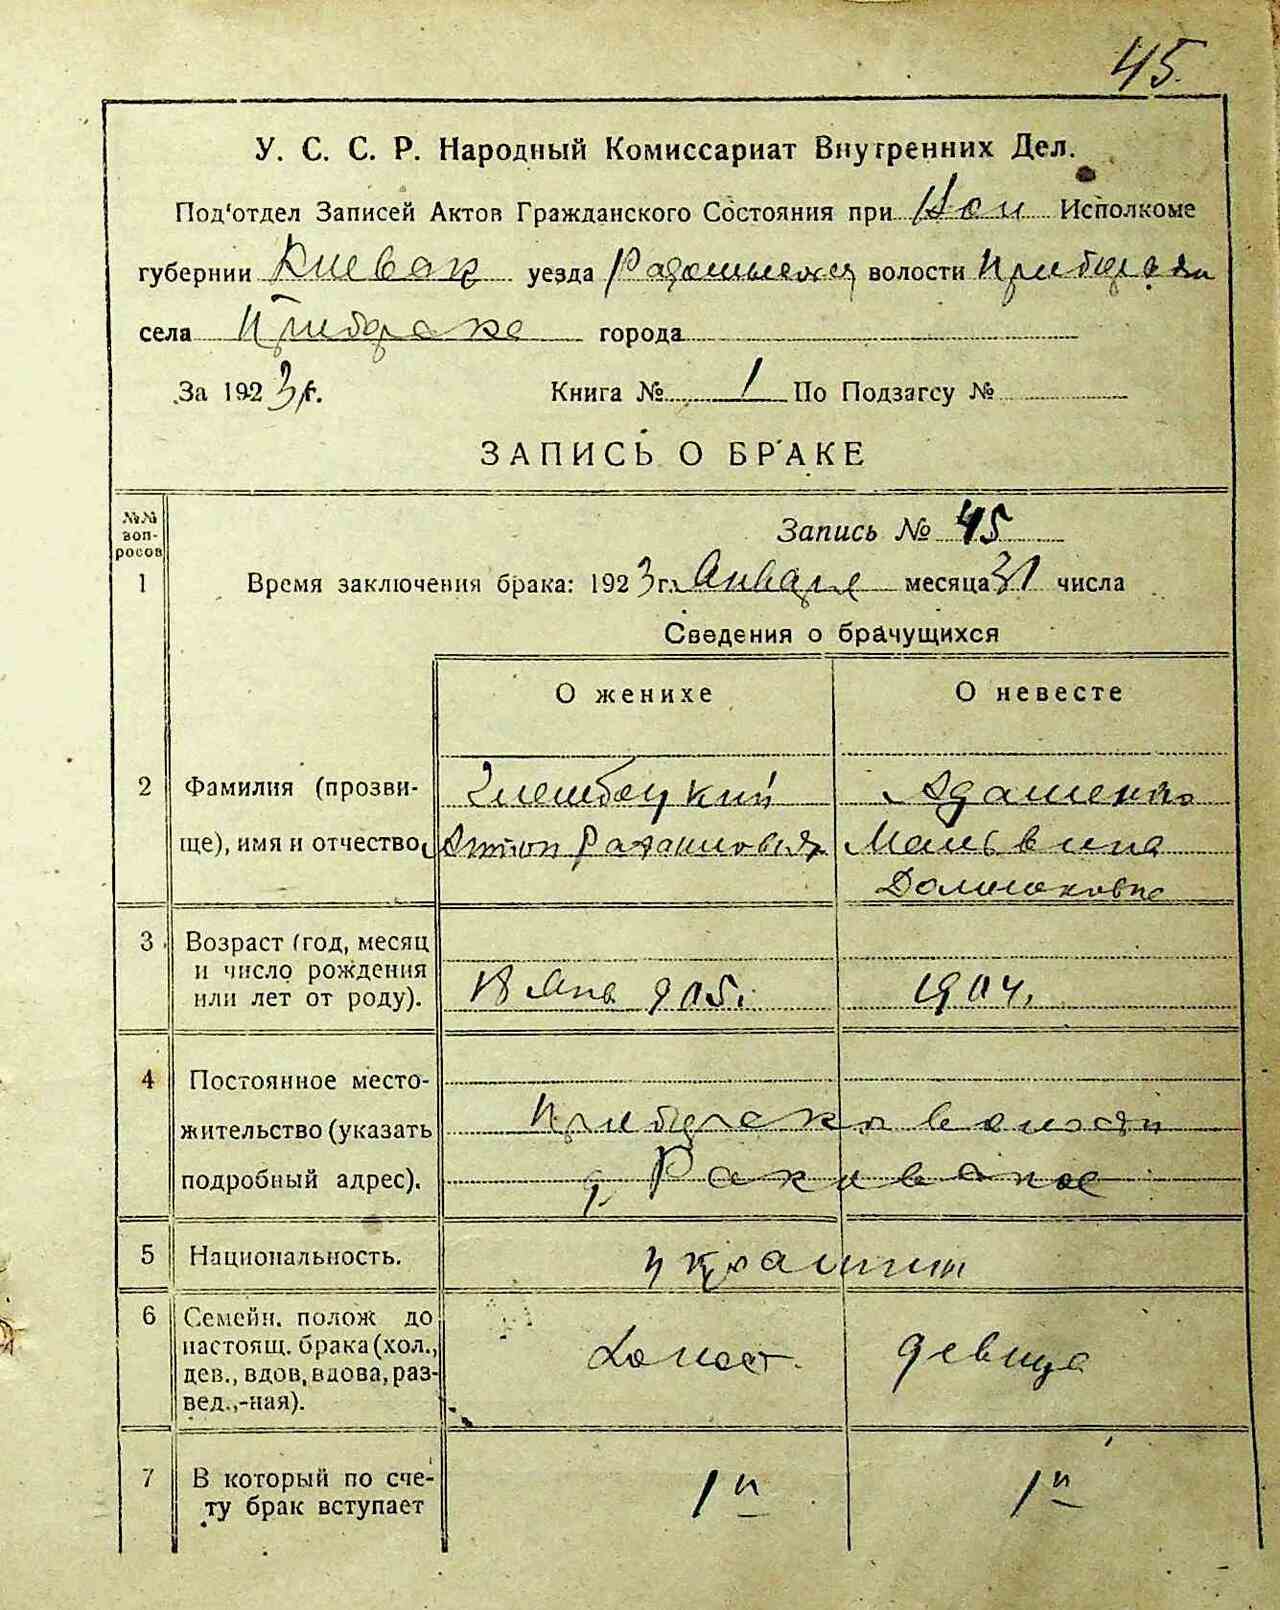 45.
У. С. С. Р. Народный Комиссариат Внутренних Дел.
Под'отдел Записей Актов Гражданского Состояния при Исполкоме
губернии Киевск уезда Радомысльск волости Приборск
села Приборска города
За 1923 г. Книга № 1 По Подзагсу №
ЗАПИСЬ О БРАКЕ
№№ воп-росов
Запись № 45
1 Время заключения брака: 1923 г. Января месяца 31 числа
Сведения о брачущихся
О женихе О невесте
2 Фамилия (прозви-
ще), имя и отчество Антон Мальвина
3 Возраст (год, месяц
и число рождения
или лет от роду). 18 Янв 905. 1904.
4 Постоянное место-
жительство (указать Приборской волости
подробный адрес). д.
5 Национальность. украинцы
6 Семейн. полож до
настоящ. брака (хол., Холост. девица
дев., вдов, вдова, раз-
вед.,-ная).
7 В который по сче- 1й 1й
ту брак вступает